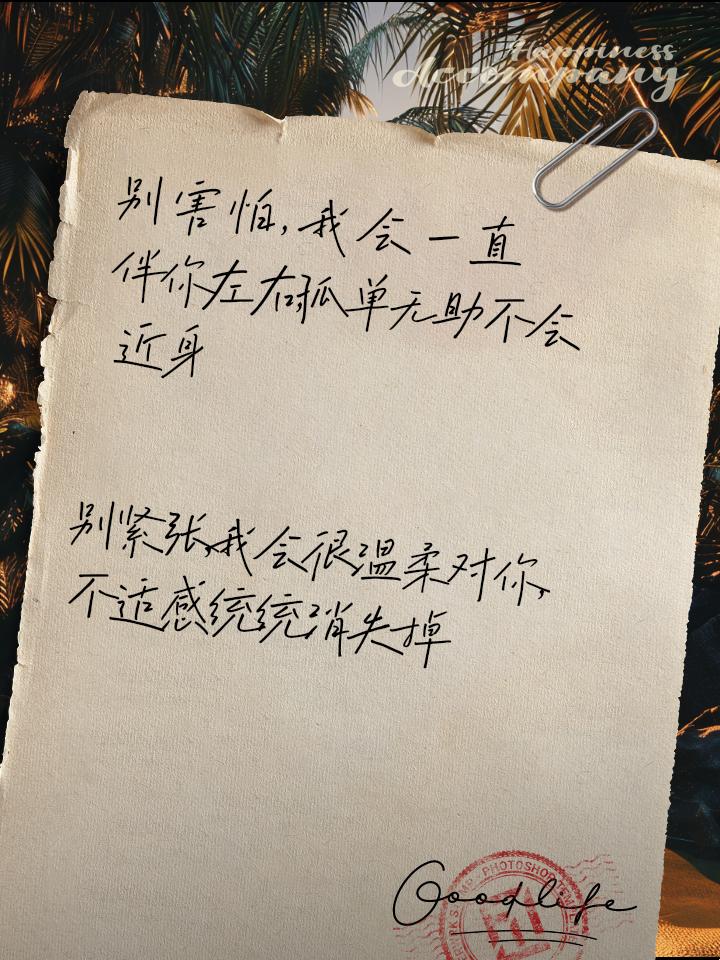 Happiness
Accompany
别害怕,我会一直
伴你左右孤单无助不会
近身
别紧张,我会很温柔对你,
不适感统统消失掉
PHOTOSHOP
Goodlife